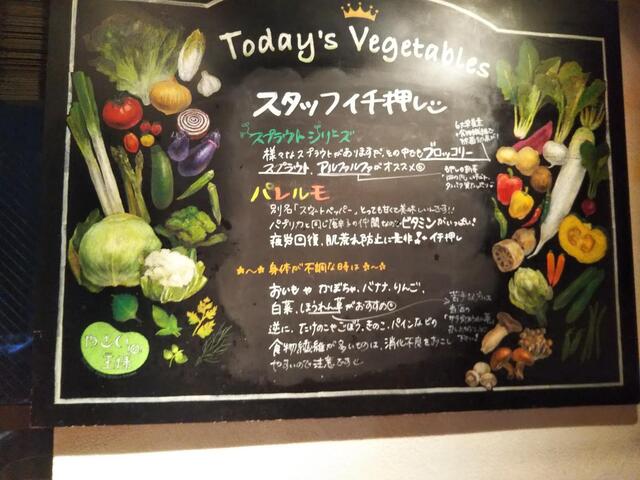 Today's Vegetables
スタッフイチ押し
スプラウトシリーズ
様々なスプラウトがありますが、その中でもブロッコリー
スプラウト、アルファルファがオススメ
パレルモ
別名「スウィートペッパー」とっても甘くて美味しいんです!!
パプリカと同じ唐辛子の仲間なのでビタミンがいっぱい!
疲労回復、肌荒れ防止に是非 イチ押し
☆〜☆ 身体が不調な時は ☆〜☆
おいもや かぼちゃ、バナナ、りんご、
白菜、ほうれん草がおすすめ
逆に、たけのこやごぼう、きのこ、パインなどの
食物繊維が多いものは、消化不良をおこし
やすいので注意です
苦手な方は
王様